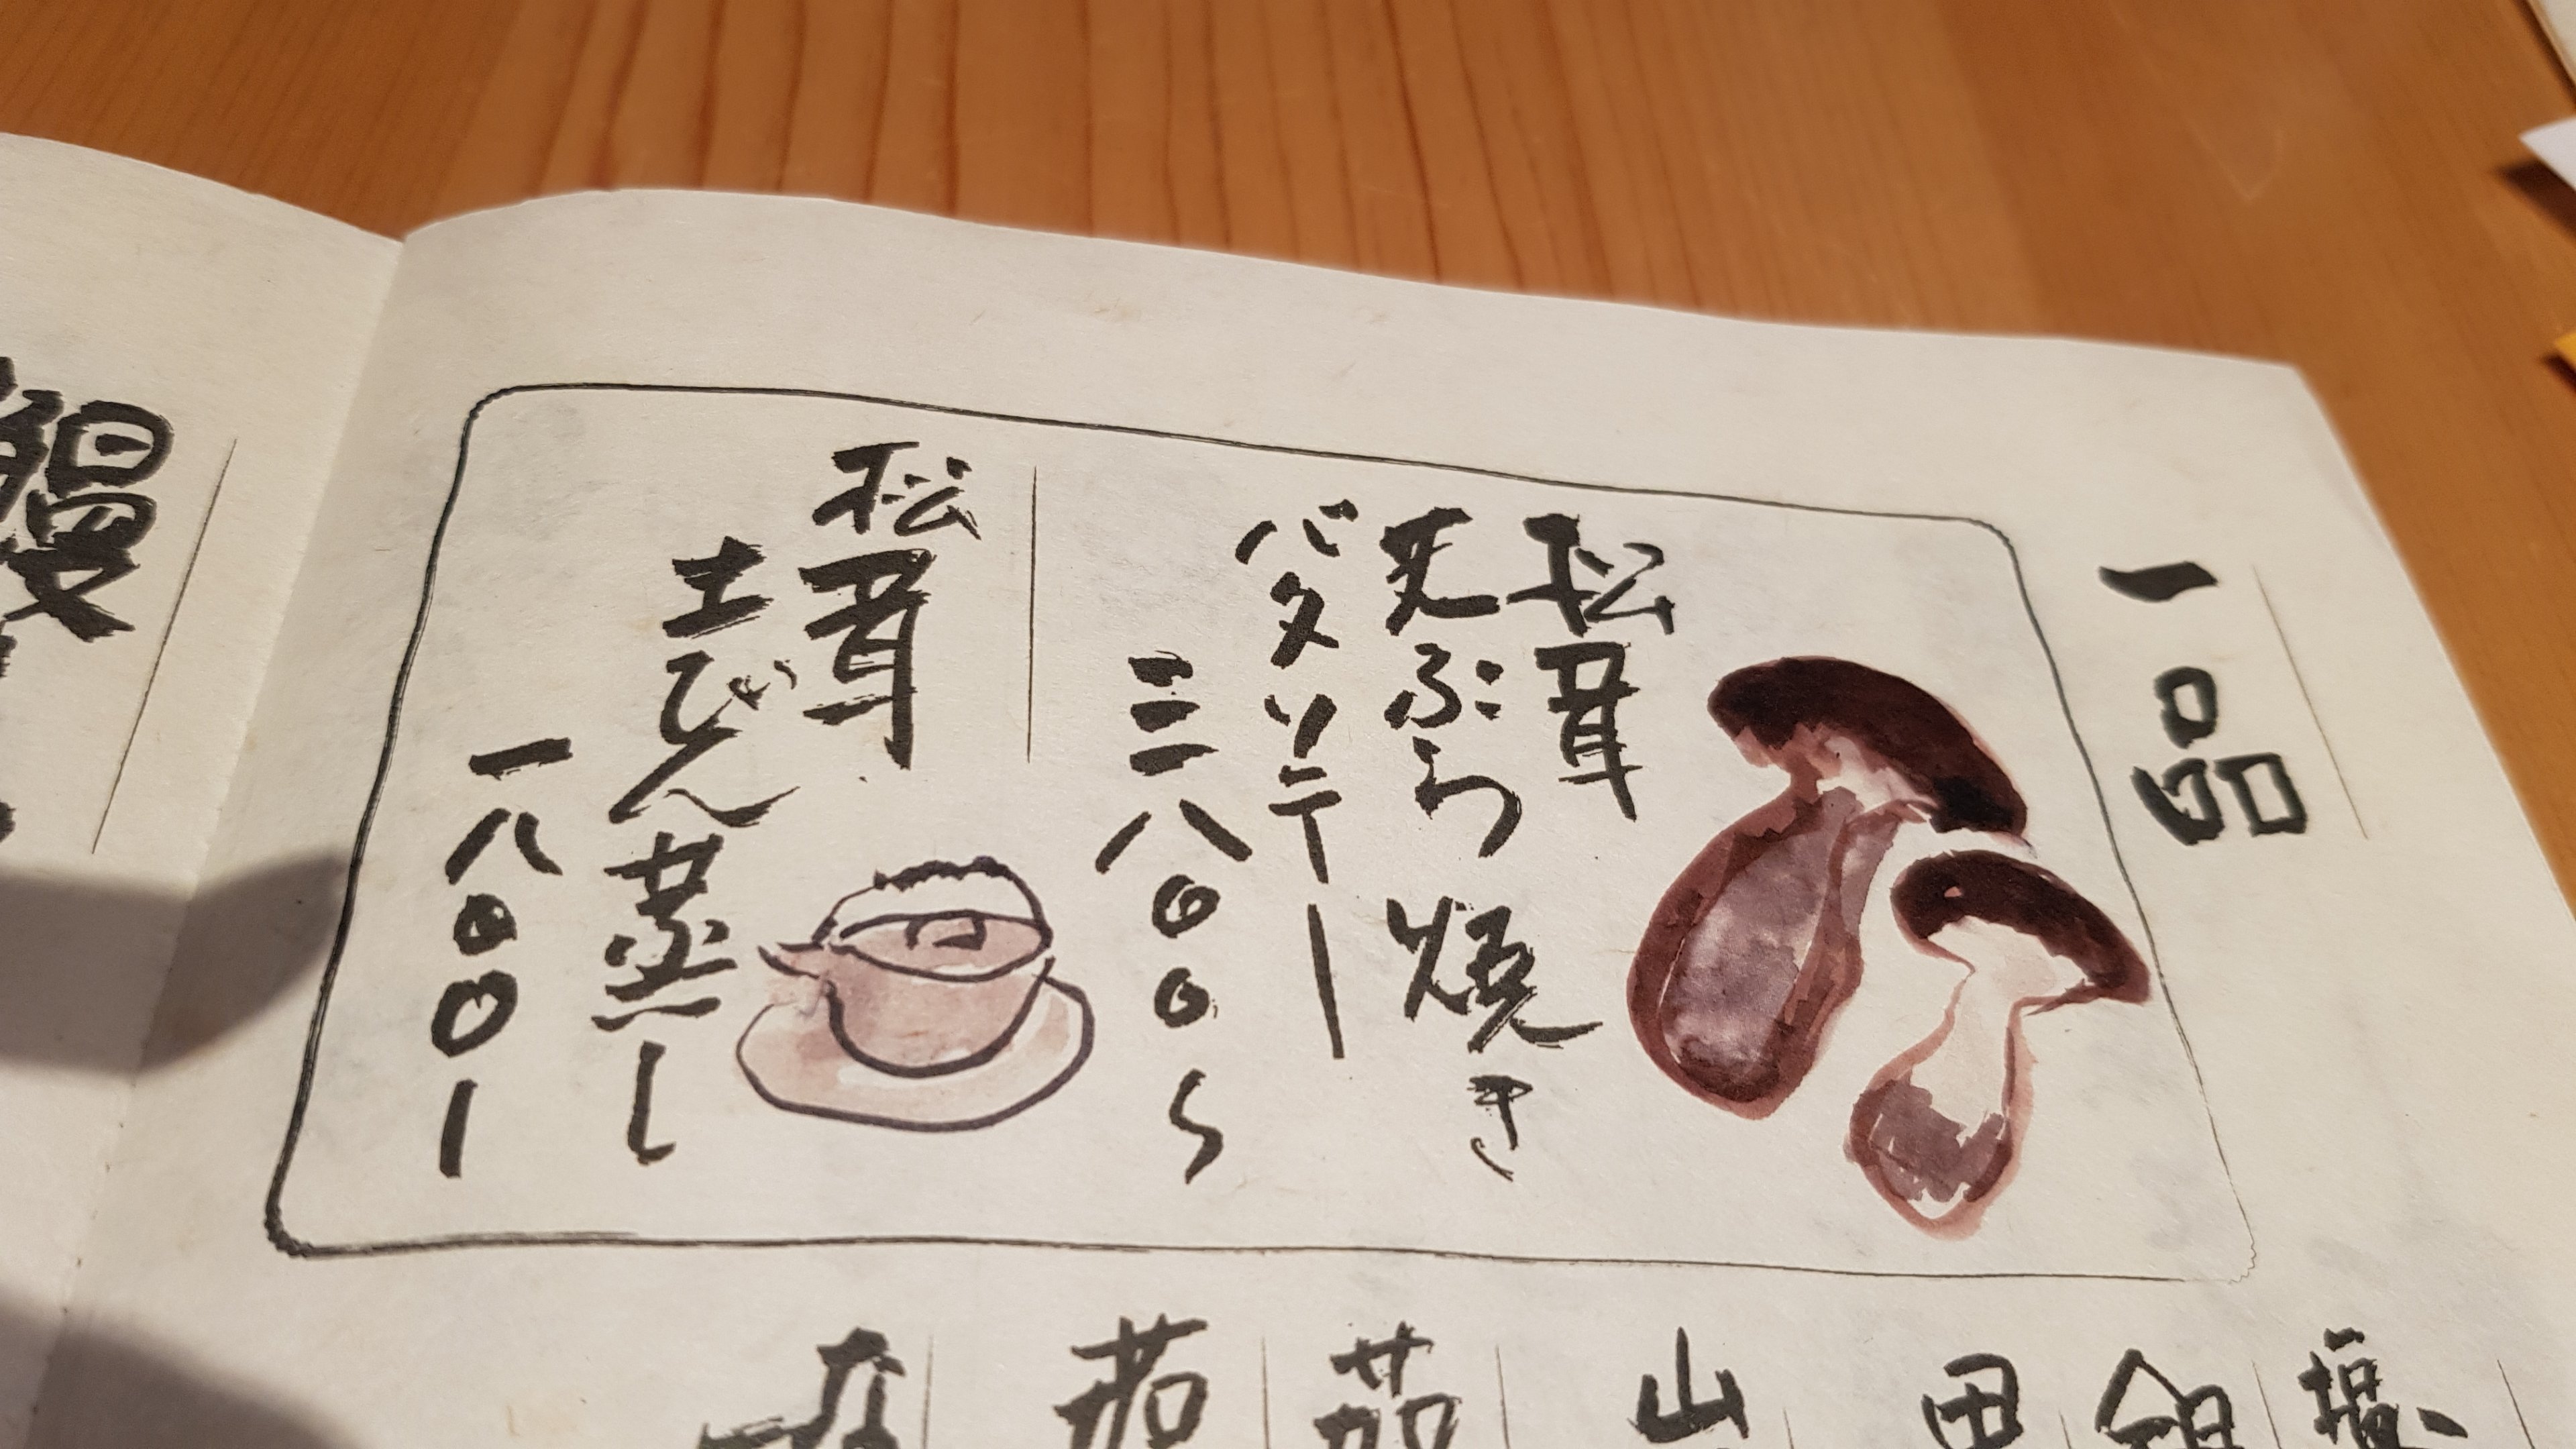 一品
松茸
天ぷら 焼き
バタソテー
三八〇〇〜
松茸
土びん蒸し
一八〇〇ー
山
茄
茄